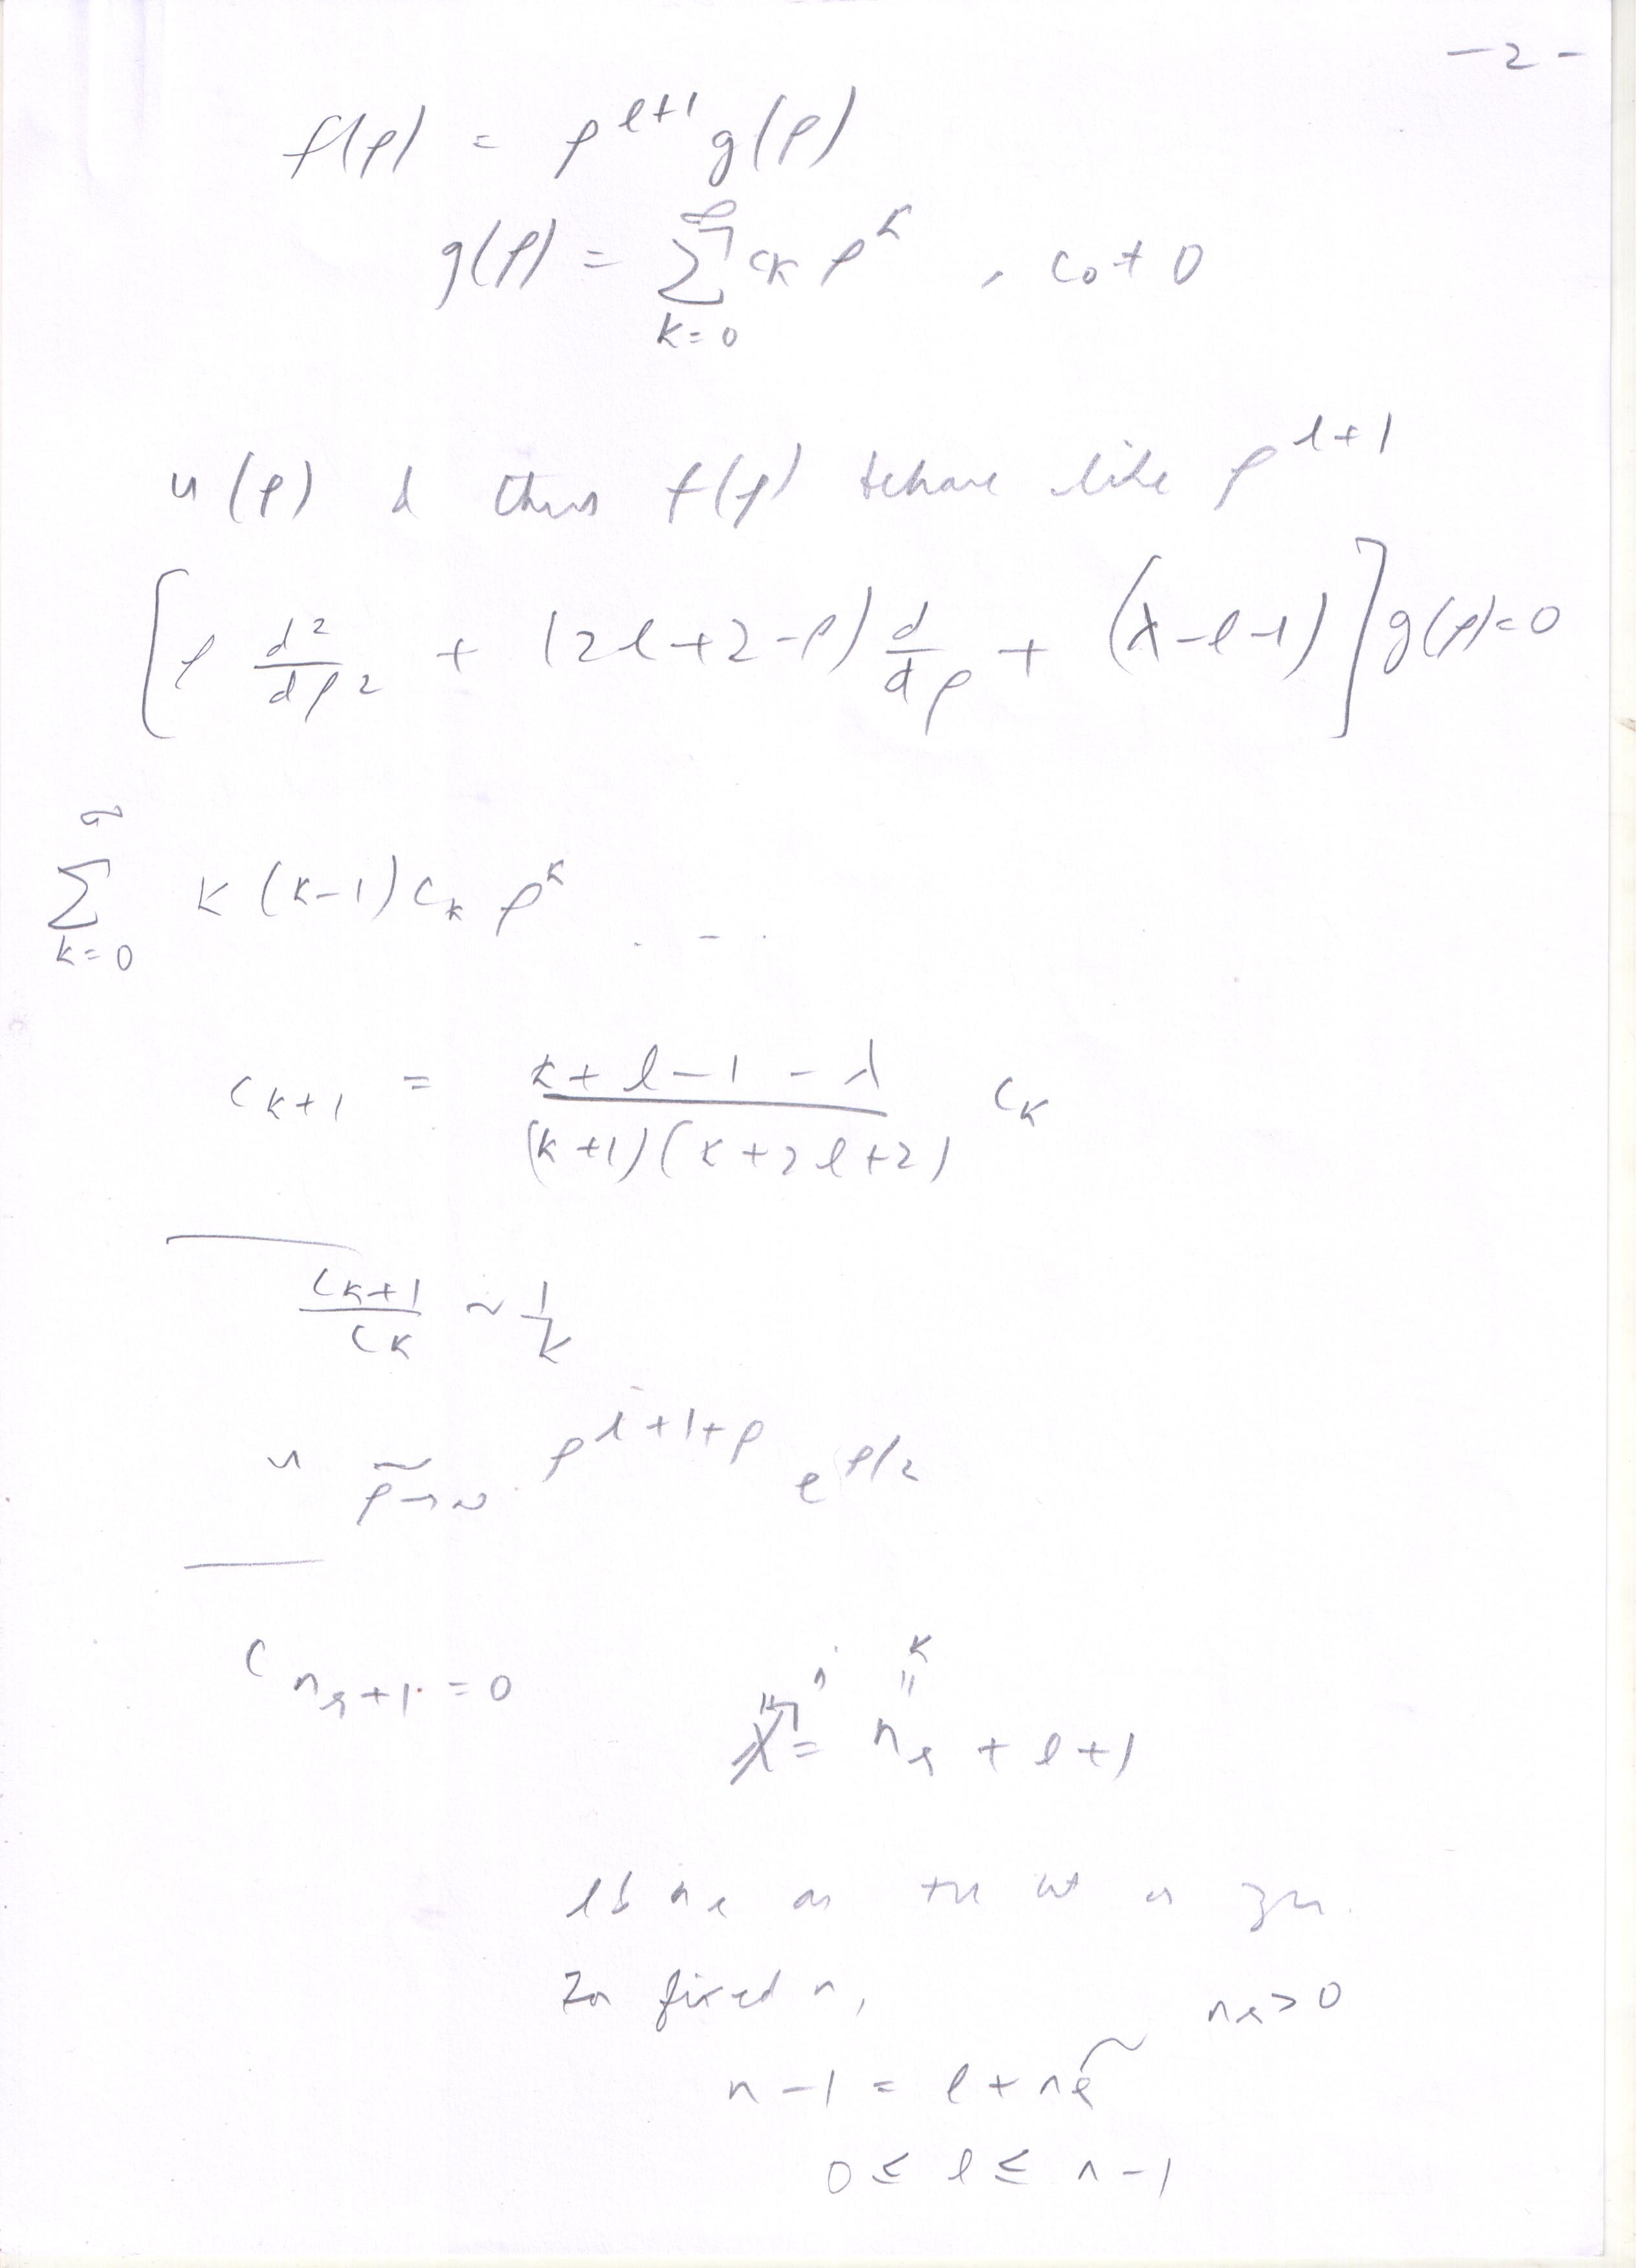 -2-
f(ρ) = ρ^{l+1} g(ρ)
g(ρ) = ∑_{k=0}^{∞} c_k ρ^k , c_0 ≠ 0
u(ρ) & thus f(ρ) behave like ρ^{l+1}
[ρ d²/dρ² + (2l+2-ρ) d/dρ + (λ-l-1)] g(ρ)=0
∑_{k=0}^{∞} k(k-1) c_k ρ^k . - .
c_{k+1} = (k+l-1-λ)/((k+1)(k+2l+2)) c_k
c_{k+1}/c_k ~ 1/k
u ~_{ρ→∞} ρ^{l+1+p} e^{ρ/2}
c_{n_r+1} = 0
k
n = n_r + l+1
fixed n,
n_r > 0
n-1 = l + n_r
0 ≤ l ≤ n-1